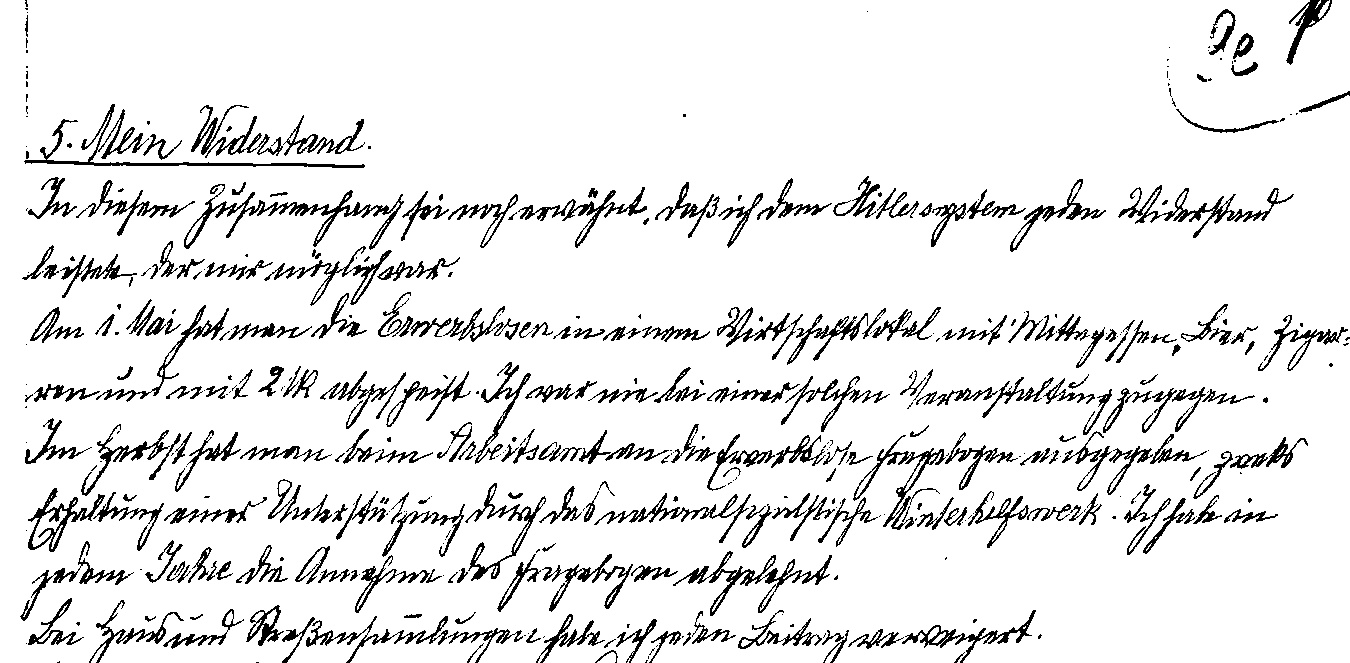 5. Mein Widerstand.
In diesem Zusam̅enhang sei noch erwähnt, daß ich dem Hitlersystem jeden Widerstand
leistete, der mir möglich war.
Am 1. Mai hat man die Erwerbslosen in einem Wirtschaftslokal mit Mittagessen, Bier, Zigar-
ren und mit 2 M abgespeist. Ich war nie bei einer solchen Veranstaltung zugegen.
Im Herbst hat man beim Arbeitsamt an die Erwerbslose Fragebogen ausgegeben, zwecks
Erhaltung einer Unterstützung durch das nationalsozialistische Winterhilfswerk. Ich habe in
jedem Jahre die Annahme des Fragebogen abgelehnt.
Bei Haus und Straßensam̅lungen habe ich jeden Beitrag verweigert.